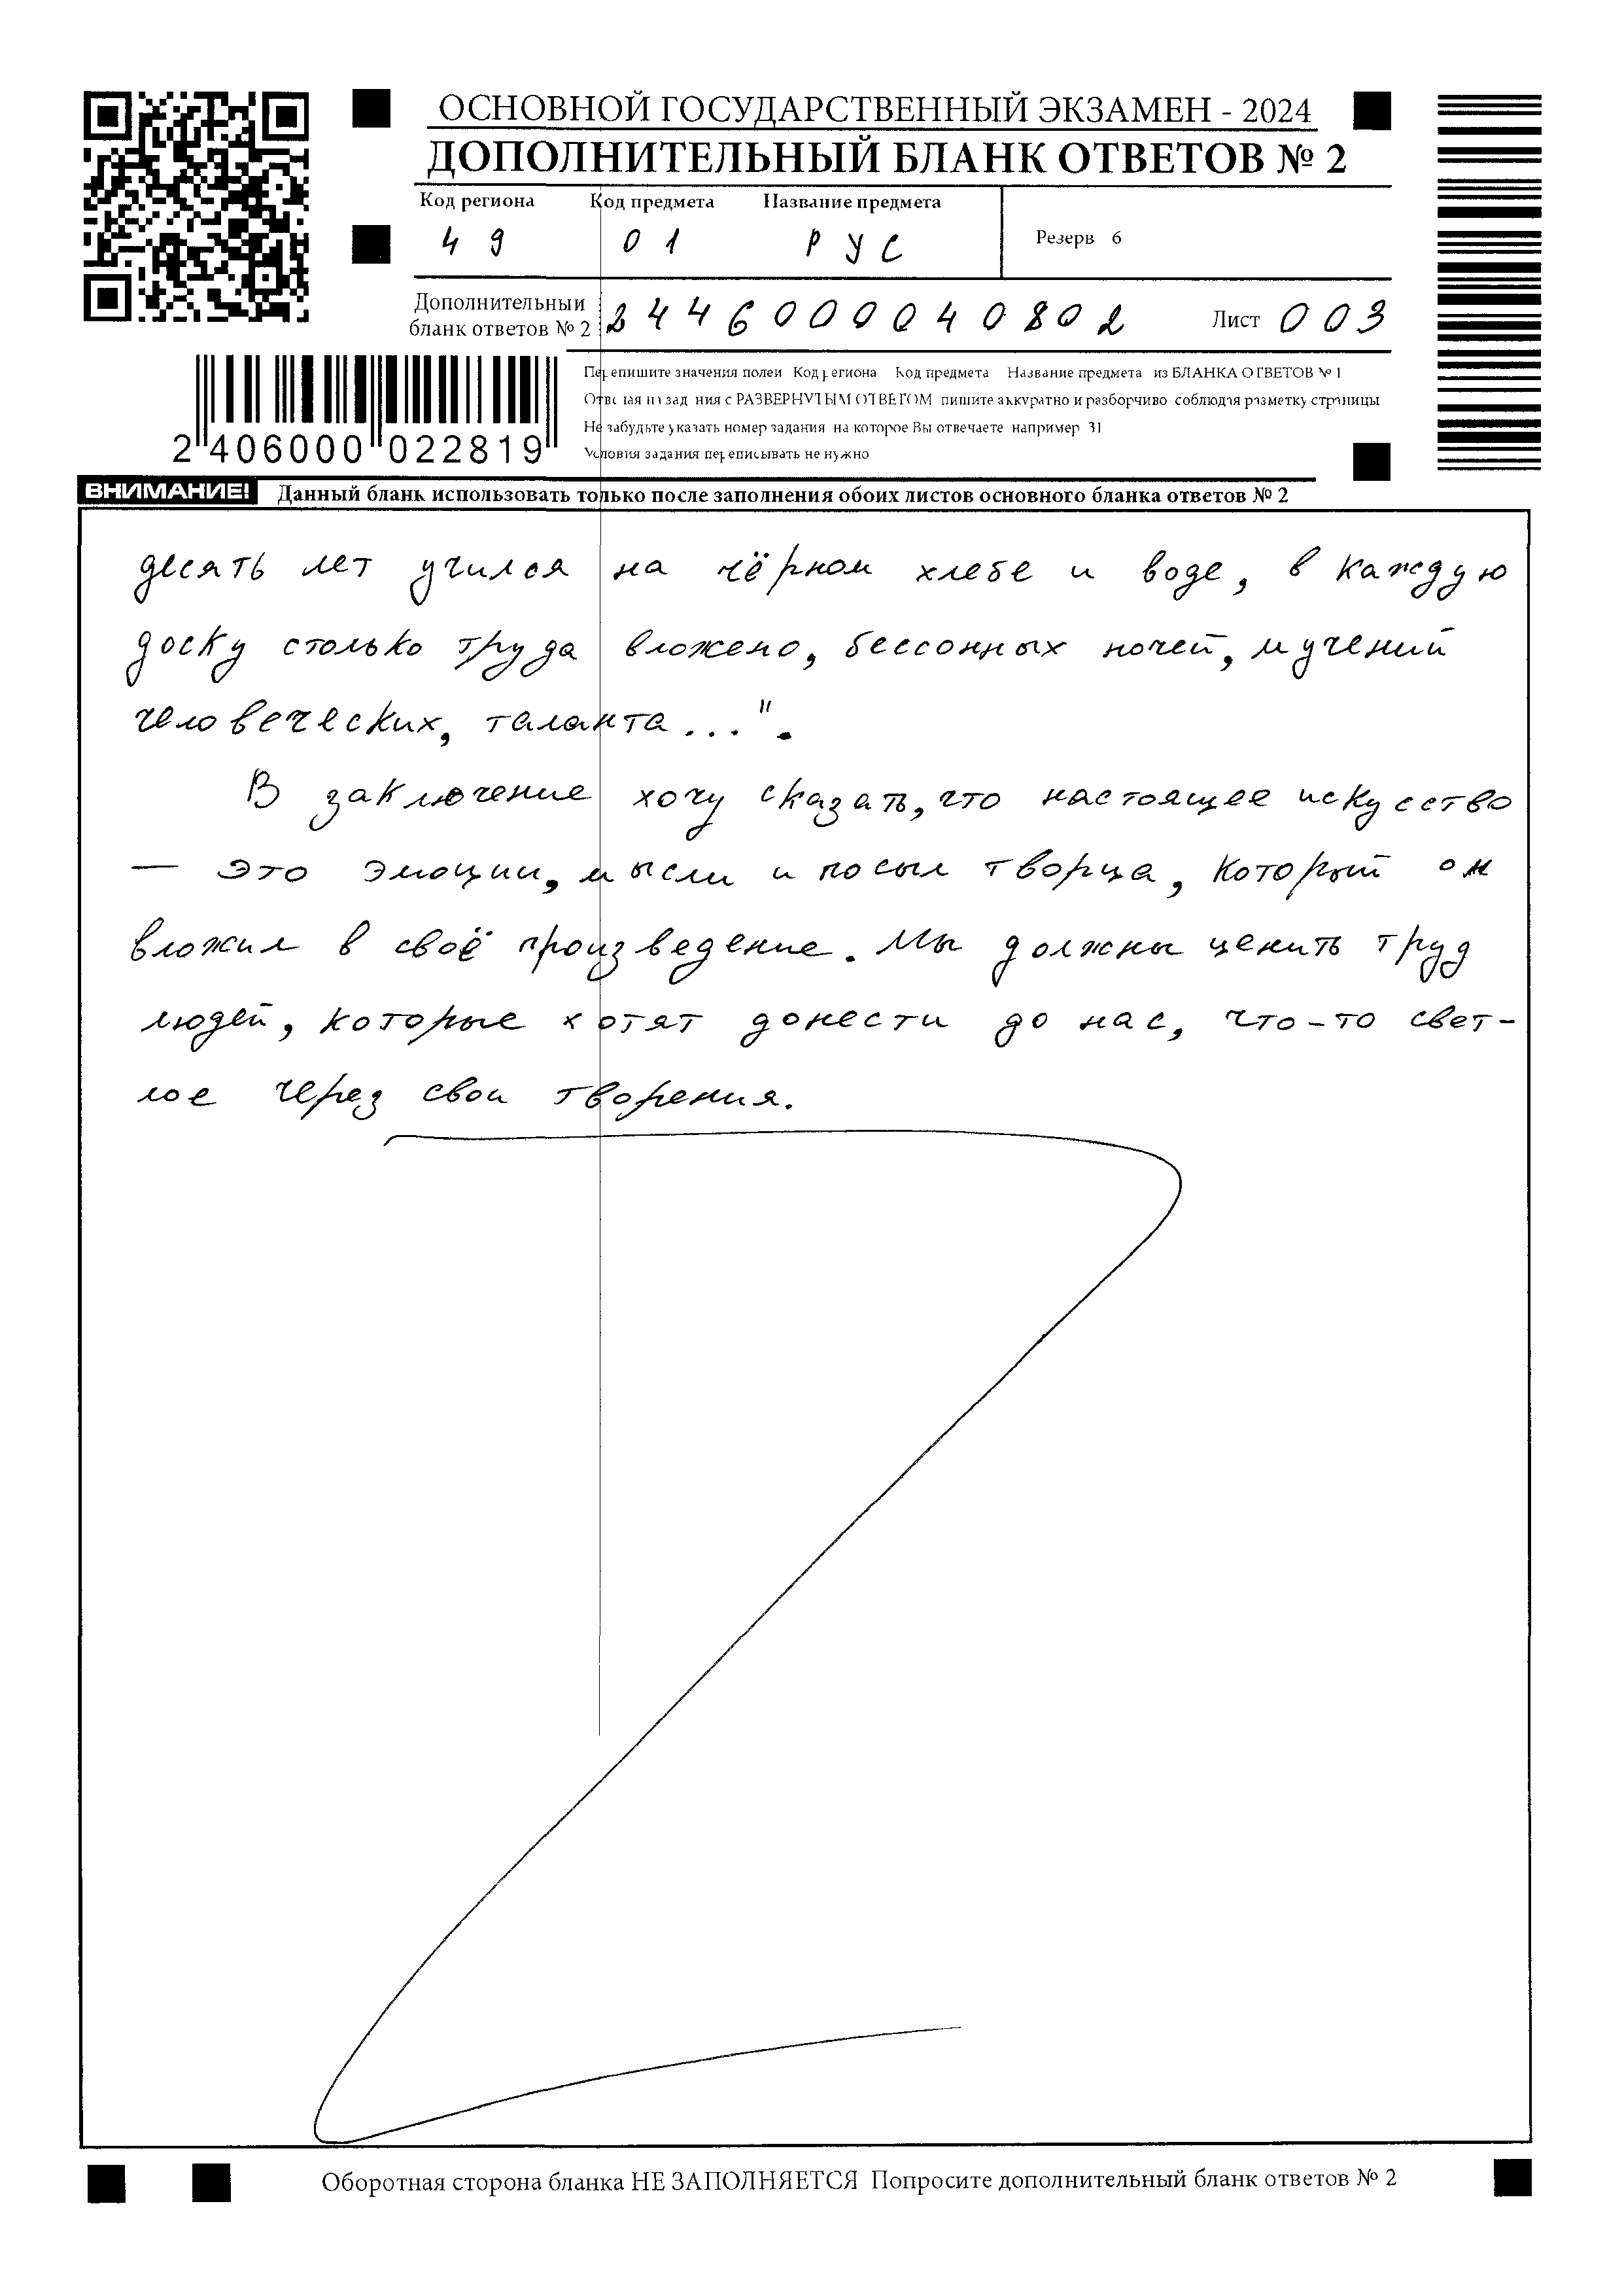 ОСНОВНОЙ ГОСУДАРСТВЕННЫЙ ЭКЗАМЕН - 2024
ДОПОЛНИТЕЛЬНЫЙ БЛАНК ОТВЕТОВ № 2
Код региона Код предмета Название предмета
49 01 РУС Резерв 6
Дополнительный
бланк ответов № 2 2446000040802 Лист 003
Перепишите значения полей Код региона Код предмета Название предмета из БЛАНКА ОТВЕТОВ № 1
Отвечая на задания с РАЗВЕРНУТЫМ ОТВЕТОМ пишите аккуратно и разборчиво соблюдая разметку страницы
Не забудьте указать номер задания на которое Вы отвечаете например 31
Условия задания переписывать не нужно
2 406000 022819
ВНИМАНИЕ! Данный бланк использовать только после заполнения обоих листов основного бланка ответов № 2
десять лет учился на чёрном хлебе и воде, в каждую
доску столько труда вложено, бессонных ночей, мучений
человеческих, таланта...".
В заключение хочу сказать, что настоящее искусство
— это эмоции, мысли и посыл творца, который он
вложил в своё произведение. Мы должны ценить труд
людей, которые хотят донести до нас, что-то свет-
лое через свои творения.
Оборотная сторона бланка НЕ ЗАПОЛНЯЕТСЯ Попросите дополнительный бланк ответов № 2